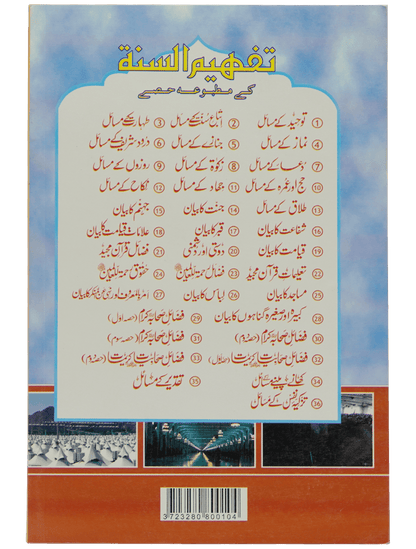 تفہیم السنة
کے مطبوعہ حصے
① توحید کے مسائل ② اتباع سنت کے مسائل ③ طہارت کے مسائل
④ نماز کے مسائل ⑤ جنازے کے مسائل ⑥ درود شریف کے مسائل
⑦ دعا کے مسائل ⑧ زکوٰة کے مسائل ⑨ روزوں کے مسائل
⑩ حج اور عمرہ کے مسائل ⑪ جہاد کے مسائل ⑫ نکاح کے مسائل
⑬ طلاق کے مسائل ⑭ جنت کا بیان ⑮ جہنم کا بیان
⑯ شفاعت کا بیان ⑰ قبر کا بیان ⑱ علامات قیامت کا بیان
⑲ قیامت کا بیان ⑳ دوستی اور دشمنی ㉑ فضائل قرآن مجید
㉒ تعلیمات قرآن مجید ㉓ فضائل رحمۃ للعالمین ㉔ حقوق رحمۃ للعالمین
㉕ مساجد کا بیان ㉖ لباس کا بیان ㉗ امر بالمعروف اور نہی عن المنکر کا بیان
㉘ کبیرہ اور صغیرہ گناہوں کا بیان ㉙ فضائل صحابہ کرام (حصہ اول)
㉚ فضائل صحابہ کرام (حصہ دوم) ㉛ فضائل صحابہ کرام (حصہ سوم)
㉜ فضائل صحابیات (حصہ اول) ㉝ فضائل صحابیات (حصہ دوم)
㉞ کھانے پینے کے مسائل ㉟ تقدیر کے مسائل
㊱ تزکیہ نفس کے مسائل
3723280800104